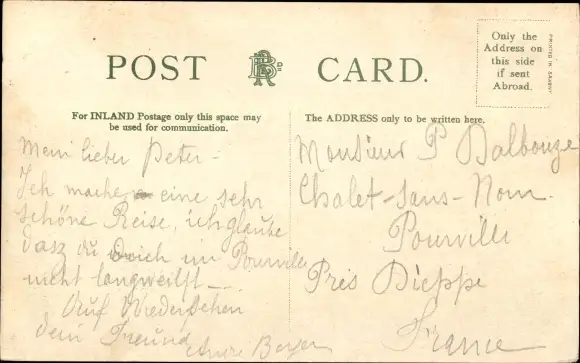 POST CARD.
Only the
Address on
this side
if sent
Abroad.
PRINTED IN SAXONY
For INLAND Postage only this space may
be used for communication.
The ADDRESS only to be written here.
Mein lieber Peter -
Ich mache eine sehr
schöne Reise, ich glaube
dasz du dich in Pourville
nicht langweilst -
Auf Wiedersehen
dein Freund
Monsieur P Dalbouze
Chalet-Sans-Nom.
Pourville
Près Dieppe
France